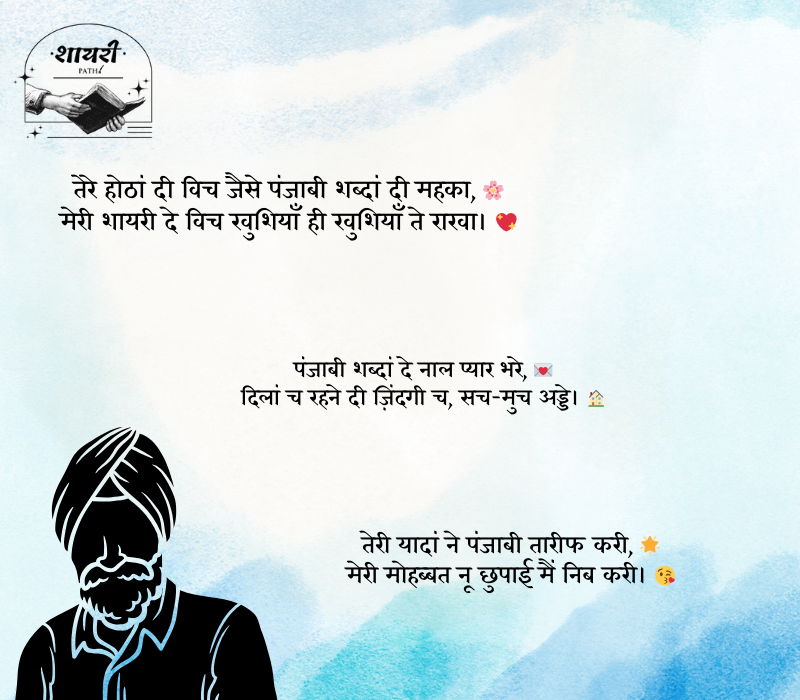 शायरी
PATH
तेरे होठां दी विच जैसे पंजाबी शब्दां दी महका, 🌸
मेरी शायरी दे विच खुशियाँ ही खुशियाँ ते राखा। 💖
पंजाबी शब्दां दे नाल प्यार भरे, 💌
दिलां च रहने दी ज़िंदगी च, सच-मुच अड्डे। 🏠
तेरी यादां ने पंजाबी तारीफ करी, ⭐
मेरी मोहब्बत नू छुपाई मैं निब करी। 😘